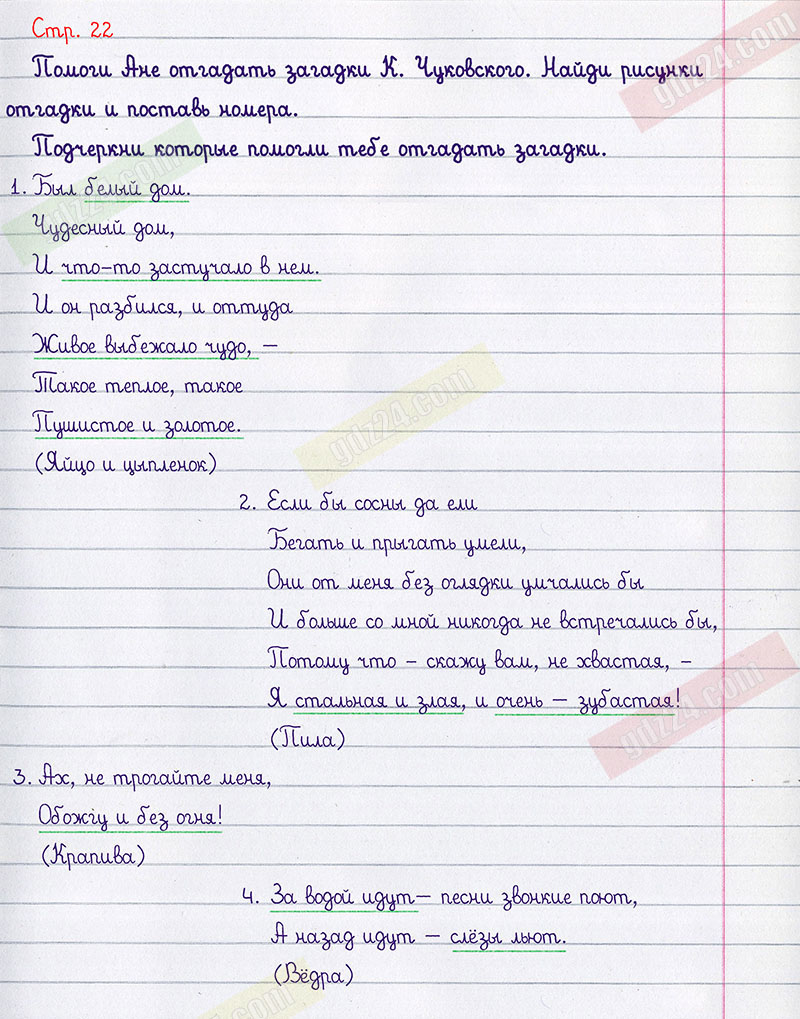 Стр. 22
Помоги Ане отгадать загадки К. Чуковского. Найди рисунки
отгадки и поставь номера.
Подчеркни которые помогли тебе отгадать загадки.
1. Был белый дом.
Чудесный дом,
И что-то застучало в нем.
И он разбился, и оттуда
Живое выбежало чудо, —
Такое теплое, такое
Пушистое и золотое.
(Яйцо и цыпленок)
2. Если бы сосны да ели
Бегать и прыгать умели,
Они от меня без оглядки умчались бы
И больше со мной никогда не встречались бы,
Потому что – скажу вам, не хвастая, –
Я стальная и злая, и очень – зубастая!
(Пила)
3. Ах, не трогайте меня,
Обожгу и без огня!
(Крапива)
4. За водой идут — песни звонкие поют,
А назад идут – слёзы льют.
(Вёдра)
gdz24.com
gdz24.com
gdz24.com
gdz24.com
gdz24.com